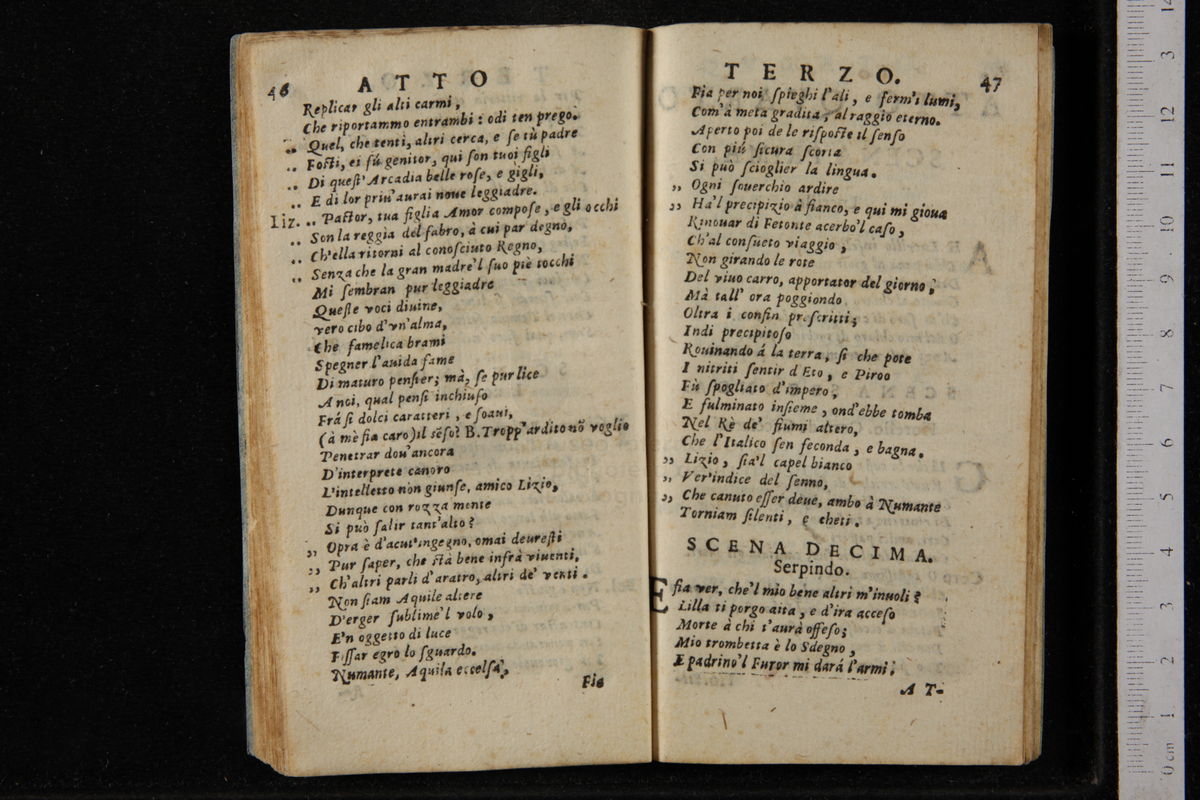 46 ATTO
Replicar gli alti carmi,
Che riportammo entrambi: odi ten prego.
„ Quel, che tenti, altri cerca, e se tù padre
„ Fosti, ei fú genitor, qui son tuoi figli
„ Di quest' Arcadia belle rose, e gigli,
„ E di lor priu' aurai noue leggiadre.
Liz. „ Pastor, tua figlia Amor compose, e gli occhi
„ Son la reggia del fabro, à cui par degno,
„ Ch'ella ritorni al conosciuto Regno,
„ Senza che la gran madre'l suo piè tocchi
Mi sembran pur leggiadre
Queste voci diuine,
vero cibo d'vn'alma,
Che famelica brami
Spegner l'auida fame
Di maturo pensier; mà, se pur lice
A noi, qual pensi inchiuso
Frá si dolci caratteri, e soaui,
(à mè sia caro) il sẽso? B. Tropp'ardito nõ voglio
Penetrar dou'ancora
D'interprete canoro
L'intelletto non giunse, amico Lizio,
Dunque con rozza mente
Si può salir tant'alto?
„ Opra è d'acut'ingegno, omai deuresti
„ Pur saper, che stà bene infrà viuenti,
„ Ch'altri parli d'aratro, altri de' venti.
Non siam Aquile altere
D'erger sublime'l volo,
E'n oggetto di luce
Fissar egro lo sguardo.
Numante, Aquila eccelsa,
Fia
TERZO. 47
Fia per noi spieghi l'ali, e ferm'i lumi,
Com'à meta gradita, al raggio eterno.
Aperto poi de le risposte il senso
Con più sicura scorta
Si può scioglier la lingua.
„ Ogni souerchio ardire
„ Ha'l precipizio à fianco, e qui mi gioua
Rinouar di Fetonte acerbo'l caso,
Ch'al consueto viaggio,
Non girando le rote
Del viuo carro, apportator del giorno;
Mà tall' ora poggiondo
Oltra i confin prescritti;
Indi precipitoso
Rouinando á la terra, si che pote
I nitriti sentir d Eto, e Piroo
Fù spogliato d'impero,
E fulminato insieme, ond'ebbe tomba
Nel Rè de' fiumi altero,
Che l'Italico sen feconda, e bagna.
„ Lizio, sia'l capel bianco
„ Ver'indice del senno,
„ Che canuto esser deue, ambo à Numante
Torniam silenti, e cheti.
SCENA DECIMA.
Serpindo.
E sia ver, che'l mio bene altri m'inuoli?
Lilla ti porgo aita, e d'ira acceso
Morte à chi t'aurà offeso;
Mio trombetta è lo Sdegno,
E padrino'l Furor mi dará l'armi.
AT-